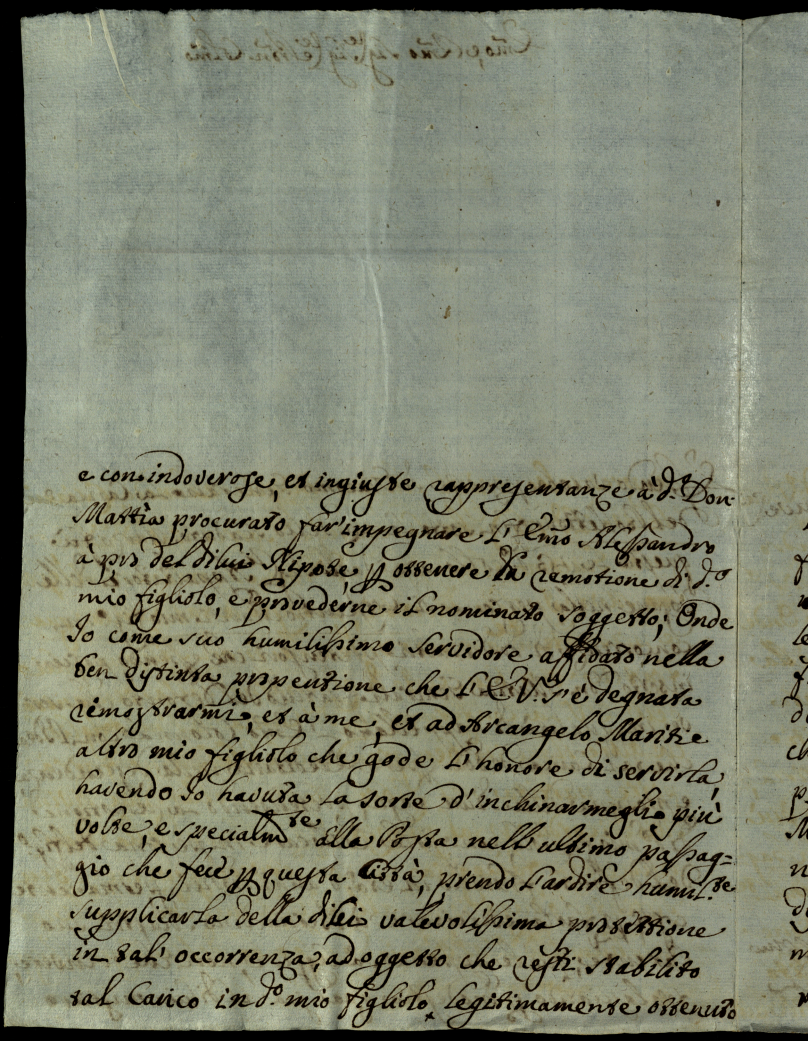 e con indoverose, et ingiuste rappresentanze à d.º Don
Mattia procurato far' impegnare L'Emo Alessandro
à prò del dilui Nipote, p ottenere la remotione di d.º
mio figliolo, e provederne il nominato soggetto; Onde
Io come suo humilissimo servidore affidato nella
ben distinta propentione che L'E.V. s'è degnata
rimostrarmi, et à me, et ad Arcangelo Maritie
altro mio figliolo che gode L'honore di servirla,
havendo Io havuta La sorte d'inchinarmegli più
volte, e specialmte alla Posta nell'ultimo passag=
gio che fece p questa Città, prendo L'ardire humilte
supplicarla della dilei valevolissima protettione
in tal' occorrenza, ad oggetto che resti stabilito
tal Carico in d.º mio figliolo legitimamente ottenuto